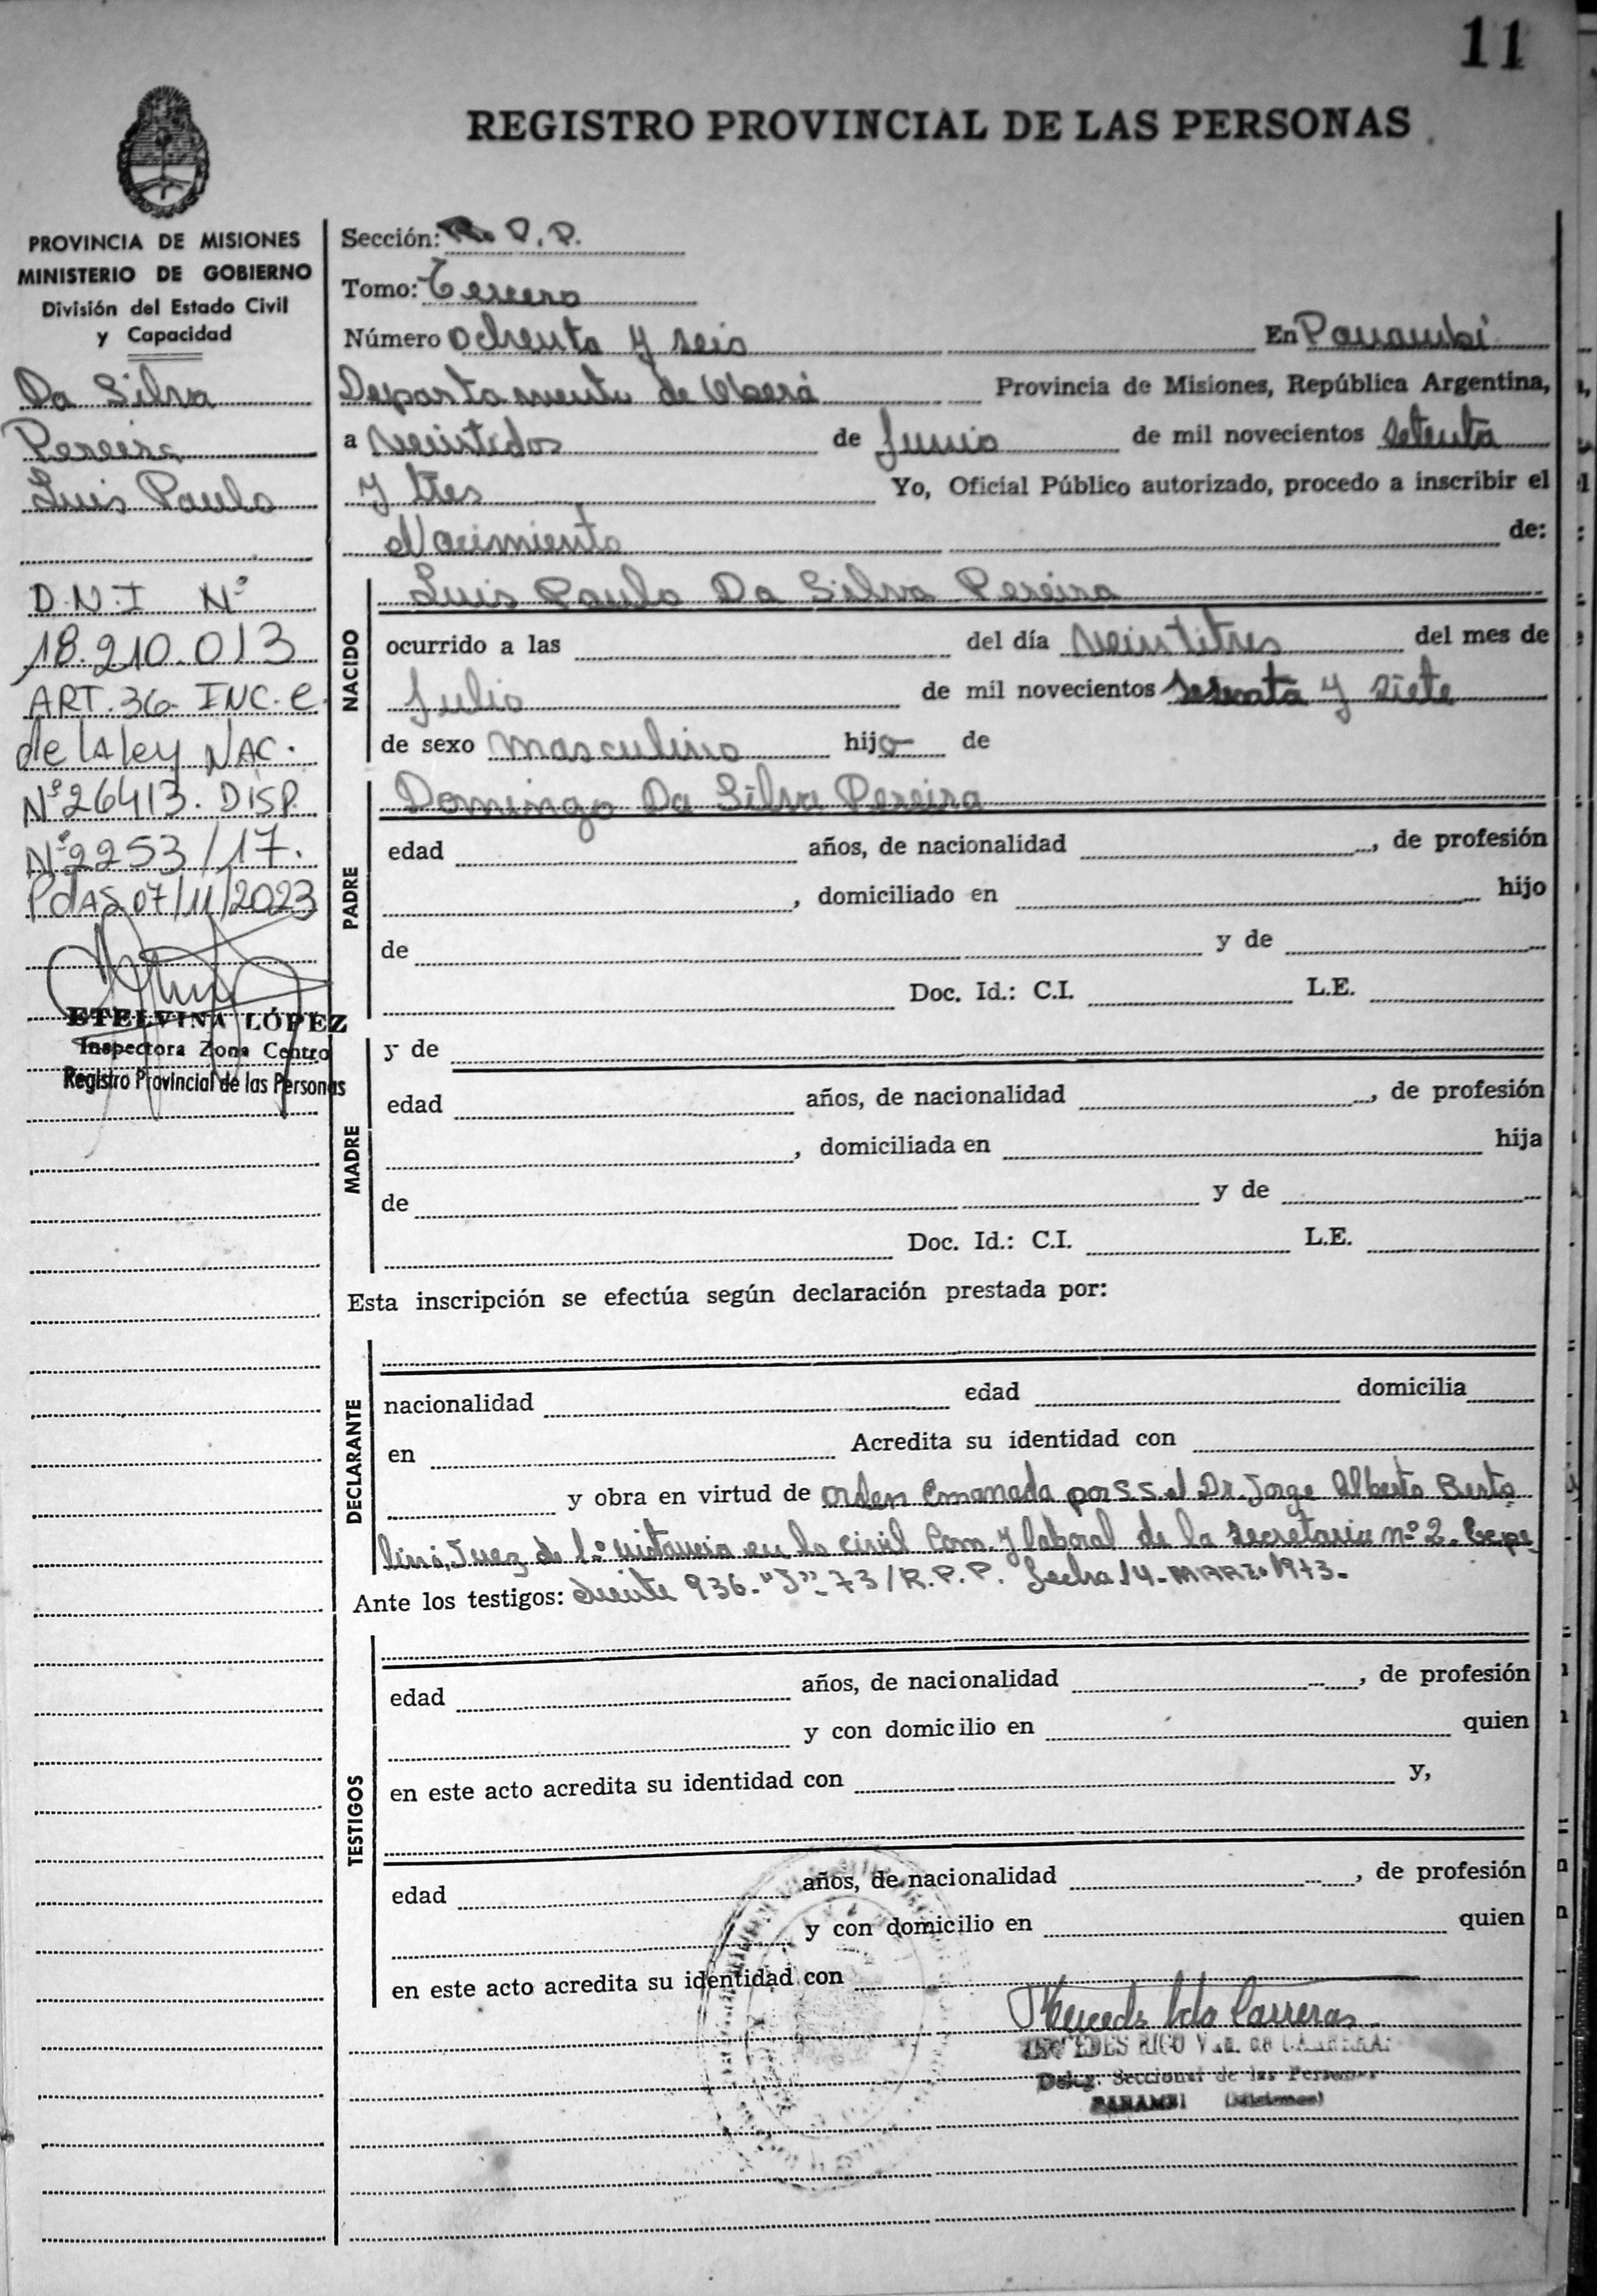 11
REGISTRO PROVINCIAL DE LAS PERSONAS
PROVINCIA DE MISIONES
MINISTERIO DE GOBIERNO
División del Estado Civil
y Capacidad
Da Silva
Pereira
Luis Paulo
D.N.I Nº
18.210.013
ART.36- INC.C
de la ley NAC.
Nº26413. DISP.
Nº2253/17.
PdAS 07/11/2023
ETELVINA LÓPEZ
Inspectora Zona Centro
Registro Provincial de las Personas
Sección: P.P.
Tomo: Tercero
Número ochenta y seis En Panambí
Departamento de Oberá Provincia de Misiones, República Argentina,
a veintidos de Junio de mil novecientos setenta
y tres Yo, Oficial Público autorizado, procedo a inscribir el
Nacimiento de:
NACIDO
Luis Paulo Da Silva Pereira
ocurrido a las del día veintitres del mes de
Julio de mil novecientos sesenta y siete
de sexo masculino hijo de
PADRE
Domingo Da Silva Pereira
edad años, de nacionalidad , de profesión
, domiciliado en hijo
de y de
Doc. Id.: C.I. L.E.
MADRE
y de
edad años, de nacionalidad , de profesión
, domiciliada en hija
de y de
Doc. Id.: C.I. L.E.
Esta inscripción se efectúa según declaración prestada por:
DECLARANTE
nacionalidad edad domicilia
en Acredita su identidad con
y obra en virtud de orden emanada por S.S. el Dr. Jorge Alberto Berto
lini, Juez de 1.º instancia en lo civil Com. y laboral de la Secretaria nº 2. Expe
Ante los testigos: diente 936-"J"-73/R.P.P. fecha 14-MARZO 1973-
TESTIGOS
edad años, de nacionalidad , de profesión
y con domicilio en quien
en este acto acredita su identidad con y,
edad años, de nacionalidad , de profesión
y con domicilio en quien
en este acto acredita su identidad con
Mercedes Vda Carreras
MERCEDES RICO Vda. de CARRERAS
Deleg. Seccional de las Personas
PANAMBI (Misiones)